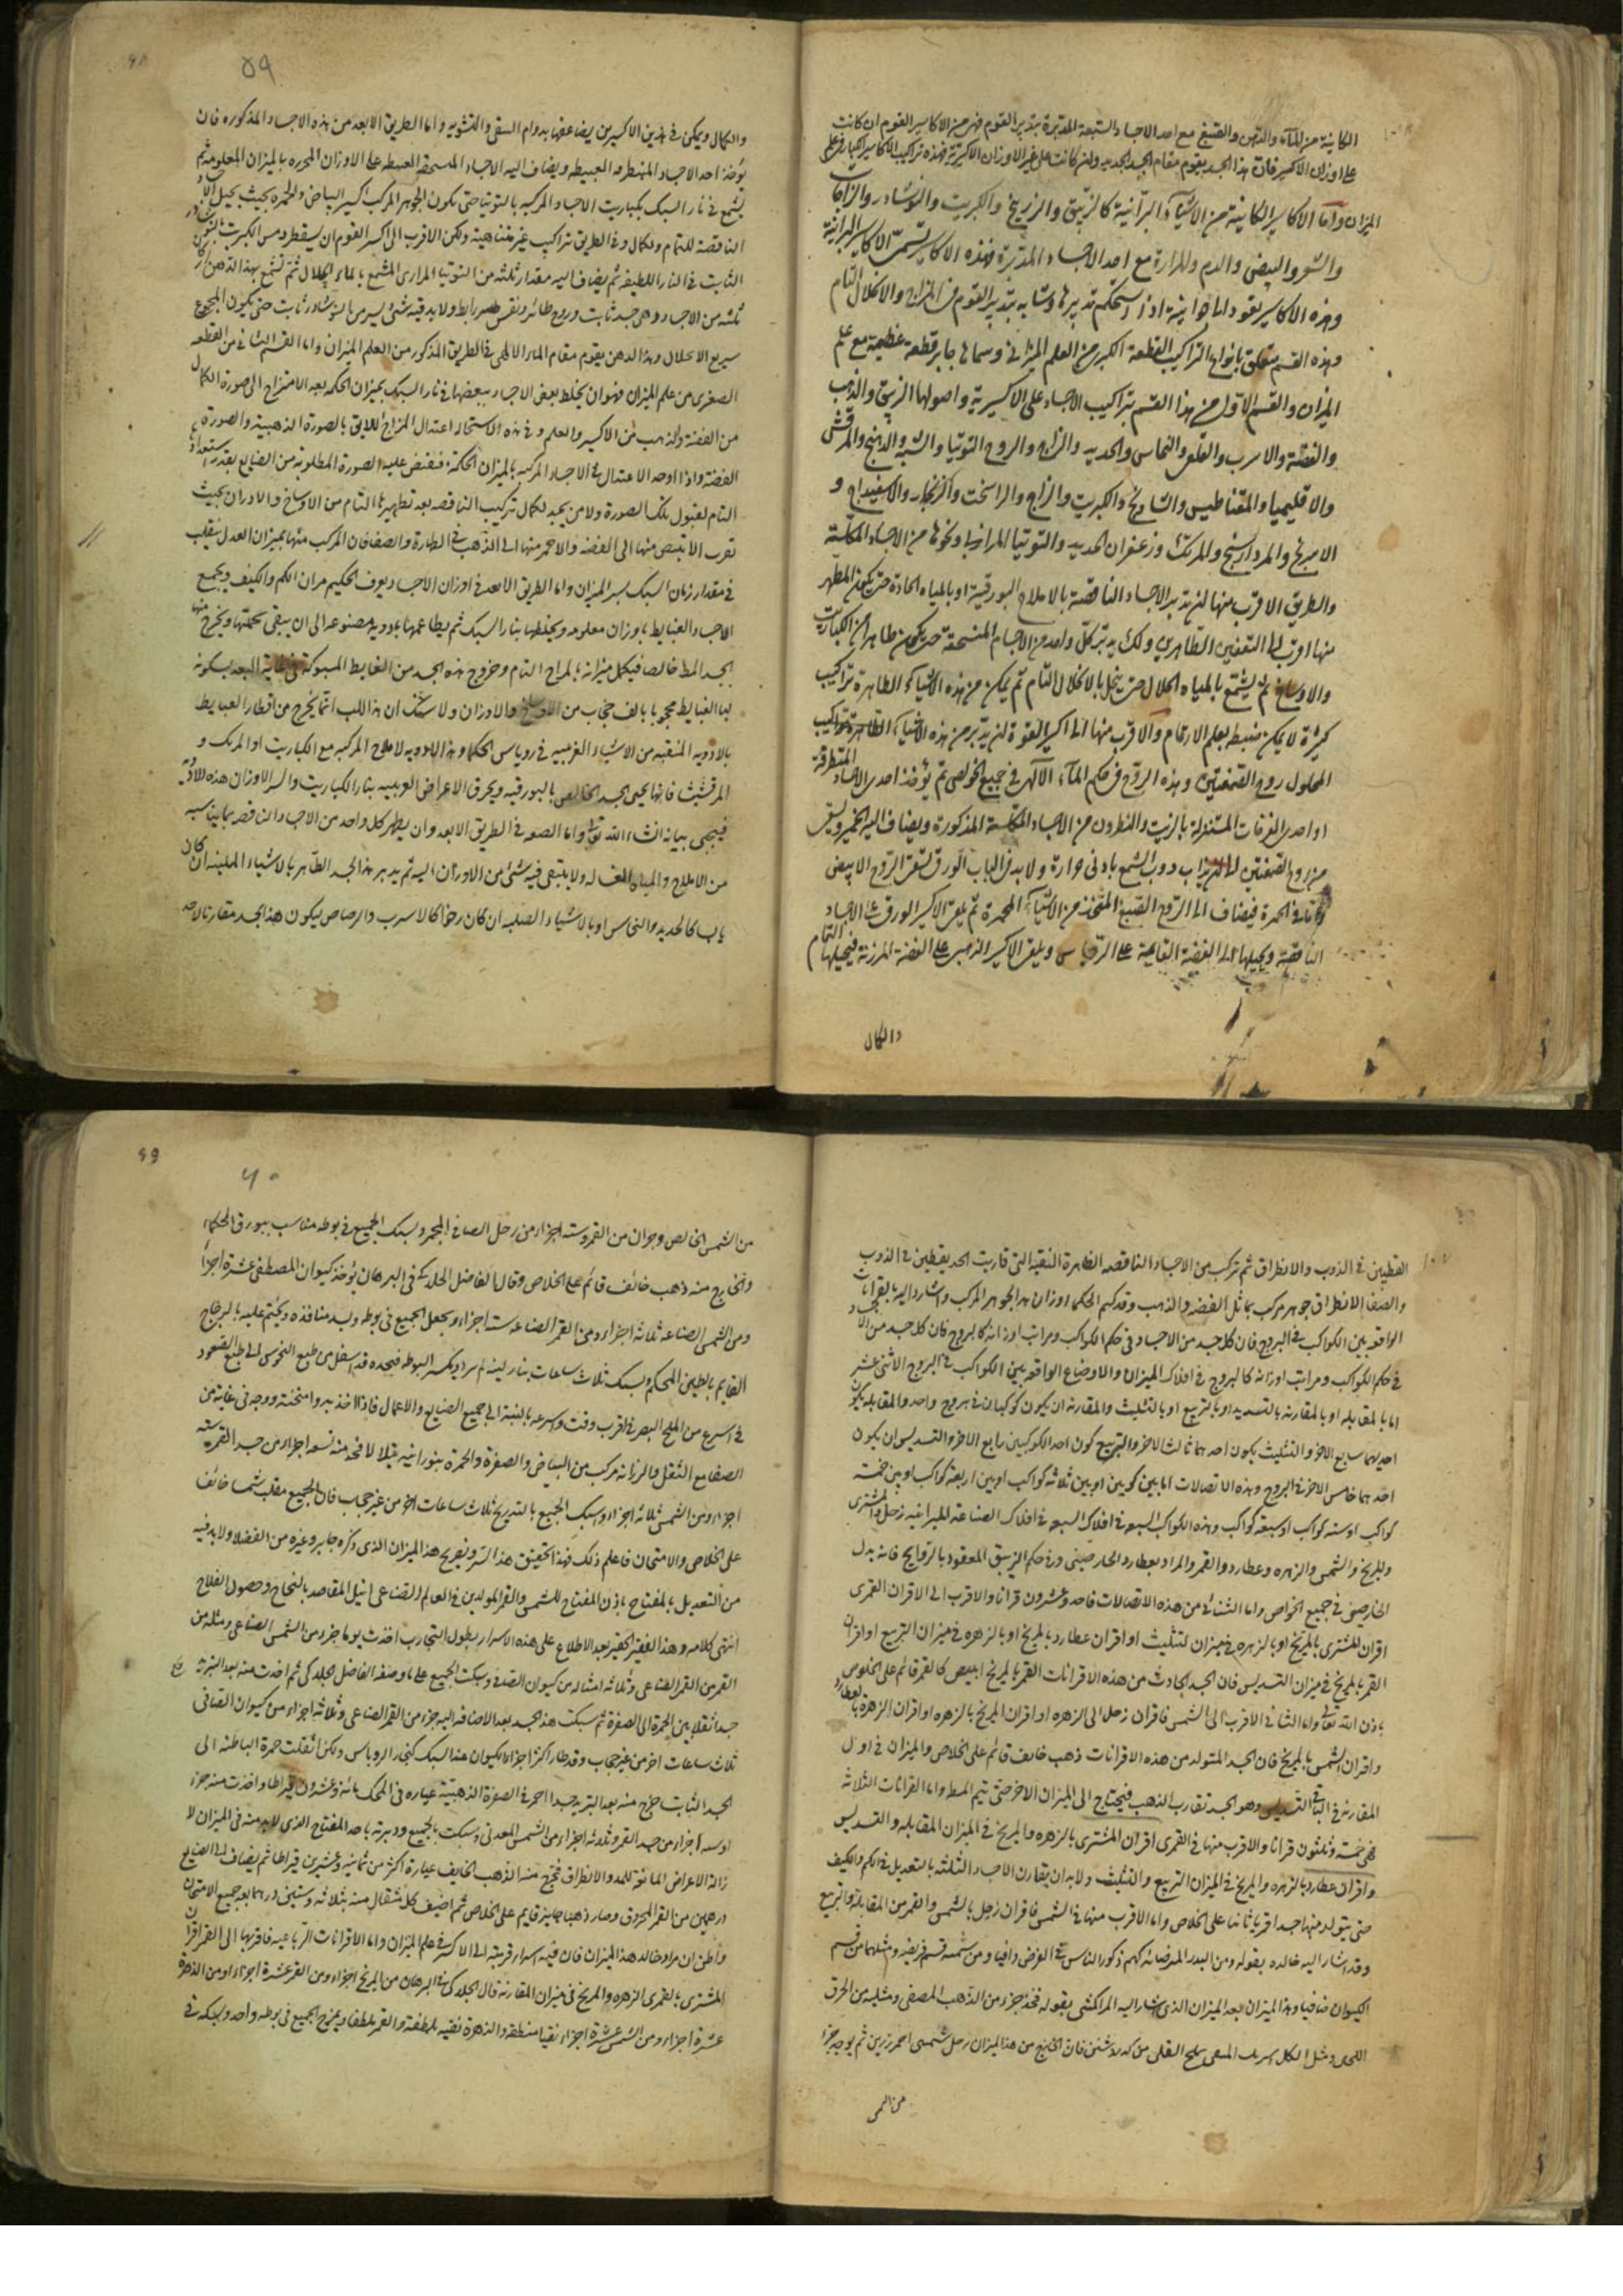 الكاينة من الماء والدهن والصبغ مع احد الاجساد السبعة المدبرة بتدبير القوم فهي من الاكاسير القوم ان كانت
على اوزان الاكسير فان هذا الجسد يقوم مقام الجسد الجديد وان كانت على غير الاوزان الاكسيرية فهذه تراكيب الاكاسير الكبار في علم
الميزان واما الاكاسير الكاينة من الاشياء البرانية كالزيبق والزرنيخ والكبريت والنوشادر والزاجات
والشعر والبيض والدم والمرارة مع احد الاجساد المدبرة فهذه الاكاسير تسمى الاكاسير البرانية
وهذه الاكاسير يقود اما جوانية اذا استحكم تدبيرها وتشابه بتدبير القوم في المزاج والانحلال التام
وهذه القسم متعلق بانواع التراكيب القطعة الكبرى من العلم الميزاني وسماها جابر قطعة عظيمة مع علم
الميزان والقسم الاول من هذا القسم تراكيب الاجساد على الاكسيرية واصولها الزيبق والذهب
والفضة والاسرب والقلعي والنحاس والحديد والزاج والروح التوتيا والشبه والدهنج والمرقشيثا
والاقليميا والمغناطيس والشاذنج والكبريت والزاج والراسخت والزنجار والاسفيداج و
الاسرنج والمرداسنج والمرتك وزعفران الحديد والتوتيا المرازبي ونحوها من الاجساد المكلسة
والطريق الاقرب منها ان يدبر الاجساد الناقصة بالاملاح البورقية او بالمياه الحادة حتى يكون المطهر
منها اقرب الى النقيين الطاهرين وكذلك يدبر كل واحد من الاجسام المنسحقة حتى يكون طاهرا من الكباريت
والاوساخ ثم يشمع بالمياه الحلال حتى ينحل بالانحلال التام ثم يمكن من هذه الاشياء الطاهرة تراكيب
كثيرة لا يمكن ضبطه بعلم الارقام والاقرب منها الى اكسير القوة ان يدبر من هذه الاشياء الطاهرة تراكيب
المحلول روح الصبغتين وهذه الروح في حكم الماء الالهي في جميع الخواص ثم يؤخذ احدى الاجساد المتطرقة
او احدى المرقشيثات المستنزلة بالزيت والنطرون من الاجساد المكلسة المذكورة ويضاف اليه الخمير ويسقى
من روح الصبغتين الى ان يذاب ذوب الشمع بادنى حرارة ولابد في الباب الورقي سقي الروح الابيض
واما في الحمرة فيضاف الى الروح الصبغ المتخذ من الاشياء المحمرة ثم يلقى الاكسير الورقي على الاجساد
الناقصة ويحيلها الى الفضة القايمة على الروباس ويلقى الاكسير الذهبي على الفضة المرزنة فيحيلها التمام
والكمال
٥٩
والكمال ويمكن في هذين الاكسيرين يضاعفها بدوام السقي والتشويه واما الطريق الابعد من هذه الاجساد المذكوره فان
يؤخذ احد الاجساد المنطرقه العبيطه ويضاف اليه الاجساد المنسحقة العبيطه على الاوزان المحرره بالميزان المعلومه ثم
يشمع في نار السبك بكباريت الاجساد المركبه بالتوتيا حتى يكون الجوهر المركب اكسير البياض والحمره بحيث يحيل الاجساد
الناقصة للتمام والكمال وفي الطريق تراكيب غير متناهية ولكن الاقرب الى اكسير القوم ان يستقطر دهن الكبريت
الثابت في النار اللطيفه ثم يضاف اليه مقدار ثلثه من التوتيا المرازبي المشمع بالماء الحلال ثم تشمع بهذا الدهن اركان
ثلثه من الاجساد وهي جسد ثابت وروح طائر ونفس رابط ولابد فيه شئ يسير من النوشادر ثابت حتى يكون المجموع
سريع الانحلال وهذا الدهن يقوم مقام الماء الالهي في الطريق المذكور من العلم الميزان واما القسم الثاني من القطعه
الصغرى من علم الميزان فهو ان يخلط بعض الاجساد ببعضها في نار السبك بميزان الحكمه بعد الامتزاج الى صورة الكمال
من الفضة والذهب من الاكسير والعلم وفي هذه الاستحاله اعتدال المزاج اللايق بالصورة الذهبية والصورة
الفضة واذا وجد الاعتدال في الاجساد المركبه بالميزان الحكمة فيفيض عليه الصورة المطلوبة من الصانع بقدر استعداده
التام لقبول تلك الصورة ولا من يجيد لكمال تركيب الناقصه بعد تطهيرها التام من الاوساخ والادران بحيث
تقرب الابيض منها الى الفضه والاحمر منها الى الذهب في الطهارة والصفا فان المركب منها بميزان العدل ينقلب
في مقدار زمان السبك بسر الميزان واما الطريق الابعد في اوزان الاجساد يعرف الحكيم ميزان الكم والكيف ويجمع
الاجساد الغبايط باوزان معلومه ويخلطها بنار السبك ثم يطاعمها بادوية مصنوعه الى ان يبقى تحتها ويخرج منها
الجسد المط خالصا فيكمل ميزانه بالمزاج التام وخروج هذه الجسد من الغبايط المسبوكة في غاية البعد يكونه
لبا الغبايط محجوبا بالف حجاب من الاوساخ والاوزان ولا شك ان هذا اللب انما يخرج من اقطار العبايط
بالادويه المنقيه من الاشياء الغريبه في روباس الحكما وهذا الادويه الاملاح المركبه مع الكباريت او المرتك و
المرقشيثا فانها يحيى الجسد الخالص بالبورقيه ويحرق الاعراض الغريبه بنار الكباريت والسر الاوزان هذه الادويه
فيجئ بيانه انشاء الله تعالى واما الصوره في الطريق الابعد وان يطهر كل واحد من الاجساد الناقصه بما يناسبه
من الاملاح والمياه الغساله ولا يبقى فيه شئ من الاوزان اليه ثم يدبر هذا الجسد الطاهر بالاشياء الملينه ان كان
يابسا كالحديد والنحاس او بالاشياء الصلبه ان كان رخوا كالاسرب والرصاص ليكون هذا الجسد مقارنا لاحد
القطبين في الذوب والانطراق ثم تركب من الاجساد الناقصه الطاهرة النقيه التي قاربت احد يقطبين في الذوب
والصفا الانطراق جوهر مركب يماثل الفضه والذهب وقد كتم الحكما اوزان هذا الجوهر المركب واشار اليه بالقرانات
الواقعه بين الكواكب في البروج فان كل جسد من الاجساد في حكم الكواكب ومراتب اوزانه كالبروج فان كل جسد من الاجساد
في حكم الكواكب ومراتب اوزانه كالبروج في افلاك الميزان والاوضاع الواقعه بين الكواكب في البروج الاثنى عشر
اما بالمقابله او بالمقارنه بالتسديد او بالتربيع او بالتثليث والمقارنه ان يكون كوكبان في برج واحد والمقابله يكون
احديهما سابع الاخر والتثليث يكون احدهما ثالث الاخر والتربيع كون احد الكوكبين رابع الاخر والتسديس ان يكون
احدهما خامس الاخر في البروج وهذه الاتصالات اما بين كوكبين او بين ثلاثه كواكب او بين اربعة كواكب او بين خمسة
كواكب او سته كواكب او سبعه كواكب وهذه الكواكب السبعه في افلاك السبعه في افلاك الصناعه الميزانيه زحل والمشترى
والمريخ والشمس والزهره وعطارد والقمر والمراد بعطارد الخارصيني وفي حكم الزيبق المعقود بالروايح فانه بدل
الخارصيني في جميع الخواص واما الثنائي من هذه الاتصالات فاحد وعشرون قرانا والاقرب الى الاقران القمرى
اقران المشترى بالمريخ او بالزهره في ميزان لتثليث او اقران عطارد بالمريخ او بالزهره في ميزان التربيع او اقران
القمر بالمريخ في ميزان التسديس فان الجسد الحادث من هذه الاقرانات القمر بالمريخ ابيض كالقمر قائم على الخلاص
باذن الله تعالى واما الثنائي الاقرب الى الشمس فاقران زحل الى الزهره او اقران المريخ بالزهره او اقران الزهره بالعطارد
واقران الشمس بالمريخ فان الجسد المتولد من هذه الاقرانات ذهب خايف قائم على الخلاص والميزان في اول
المقارنه في الباقي التسديس وهو الجسد تقارب الذهب فيحتاج الى الميزان الاخر حتى يتم المط واما القرانات الثلاثه
فهي خمسة وثلثون قرانا والاقرب منها في القمرى اقران المشترى بالزهره والمريخ في الميزان المقابله والتسديس
واقران عطارد بالزهره والمريخ في الميزان التربيع والتثليث ولابد ان يتقارن الاجساد الثلثه بالتعديل في الكم والكيف
حتى يتولد منها جسد اقرب ثابتا على الخلاص واما الاقرب منها في الشمس فاقران زحل بالشمس والقمر من المقابلة والتربيع
وقد اشار اليه خالد بقوله ومن البدر المرضانه كهم ذكور الناس في الفرض وافيا ومن شمسه قسم فريضه ومثلهما من قسم
الكيوان صافيا وهذا الميزان بعد الميزان الذى اشار اليه المراكشى بقوله فخذ جزء من الذهب المصفى ومثليه من الحرق
اللحى ومثل الكل اسرب المنقى بملح القلى من كدر شنن فان الخارج من هذا الميزان رحل شمسى احمر رزين ثم يوجد جزء
من الشمس
٦٠
من الشمس الخالص وجزآن من القمر وسته اجزاء من زحل الصافى المحمر وسبك الجميع في بوطه مناسب ببورق الحكماء
والخارج منه ذهب خائف قائم على الخلاص وقال الفاضل الجلدكى في البرهان يؤخذ كيوان المصطفى عشرة اجزاء
ومن الشمس الصناعه ثلاثه اجزاء ومن القمر الصناعه سته اجزاء ويجعل الجميع في بوطه ويسد منافذه ويختم عليه بالزجاج
القايم بالطين المحكم ويسبك ثلاث ساعات بنار لينه ثم يبرد ويكسر البوطه فيجده قد انتقل من طبع النحوس الى طبع السعود
في اسرع من اللمح البصر في اقرب وقت واسرعه بالنسبة الى جميع الصنايع والاعمال فاذا اخذ يبرد وامتحنته ووجد في غاية من
الصفا مع الثقل والرزانة مركب من البياض والصفرة والحمرة بنورانيه يتلالا فخذ منه تسعه اجزاء من جسد القمر سته
اجزاء ومن الشمس ثلاثه اجزاء واسبك الجميع بالتدريج ثلاث ساعات اخر من غير حجاب فان الجميع منقلب شمسا خائف
على الخلاص والامتحان فاعلم ذلك فهذا تحقيق هذا السر وتفريع هذا الميزان الذى ذكره جابر وغيره من الفضلا ولابد فيه
من التعديل بالمفتاح باذن المفتاح للشمس والقمر المولدين في العالم الصناعى لنيل المقاصد بالنجاح وحصول الفلاح
انتهى كلامه وهذا الفقير الحقير بعد الاطلاع على هذه الاسرار بطول التجارب اخذت يوما جزء من الشمس الصناعى ومثله من
القمر من القمر الصناعى وثلاثه امثاله من كيوان الصافى وسبكت الجميع على ما وصفه الفاضل الجلدكى ثم اخذت منه بعد التبريد
جسدا ثقلا بين الحمرة الى الصفرة ثم سبكت هذا الجسد بعد الاضافه اليه جزء من القمر الصناعى وثلاثه اجزاء من كيوان الصافى
ثلاث ساعات اخر من غير حجاب وقد طار اكثر اجزاء الكيوان هذا السبك كنجار الروباس ولكن انقلت حمرة الباطنه الى
الجسد الثابت خرج منه بعد التبريد جسدا احمر في الصفرة الذهبية عياره في المحك مائة وعشرون قيراطا واخذت منه جزء
او سته اجزاء من جسد القمر وثلاثه اجزاء من الشمس المعدنى وسبكت بالجميع ودبرته باحد المفتاح الذى لابد منه في الميزان لا
زالة الاعراض المانعة للمد والانطراق فخرج منه الذهب الخايف عياره اكثر من ثمانية وعشرين قيراطا ثم يضاف اليه الصنايع
درهمين من القمر المحروق وصار ذهبا جايزا قايم على الخلاص ثم اضيف كل مثقال منه بثلاثه وستين درهما بعد جميع الامتحان
واظن ان مراد خالد هذا الميزان فان فيه اسرار قريبة الى الاكسير في علم الميزان واما الاقرانات الرباعيه فاقربها الى القمر اقران
المشترى بالقمرى الزهره والمريخ في ميزان المقارنة قال الجلدكى في البرهان من المريخ اجزاء ومن القمر عشرة اجزاء ومن الزهرة
عشرة اجزاء ومن الشمس عشرة اجزاء نقيا منطقة والزهرة نقيه ملطفة والقمر ملطفا ويمزج الجميع في بوطه واحد ويسبكه في